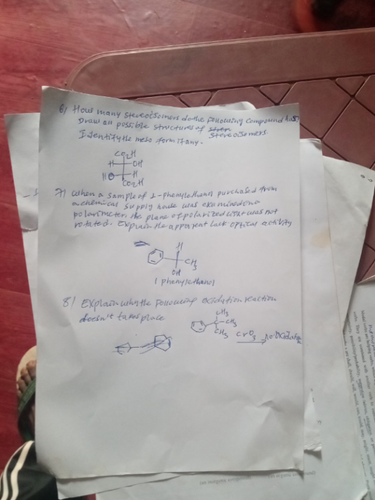 6/ How many stereoisomers do the following compound has?
Draw all possible structures of stereoisomers
Identify the meso form if any.
CO2H
H OH
HO H
CO2H
7/ When a sample of 1-phenylethanol purchased from
a chemical supply was examined in a
polarimeter the plane of polarized was not
rotated. Explain the apparent lack optical activity
H
CH3
OH
1 phenylethanol
8/ Explain why the following oxidation reaction
doesn't takes place
CH3
CH3
CH3
CrO3